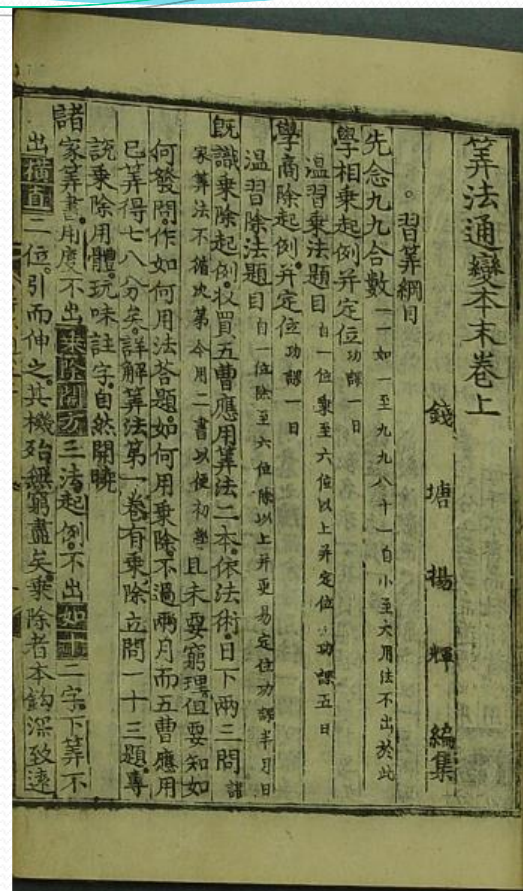 筭法通變本末卷上
錢塘揚輝編集
。習筭綱目
先念九九合數一一如一至九九八十一自小至大用法不出於此
學相乗起例并定位功課一日
溫習乗法題目自一位乗至六位以上并定位功課五日
學商除起例并定位功課一日
溫習除法題目自一位除至六位除以上并更易定位功課半月日
旣識乗除起例收買五曹應用筭法二本依法術日下兩三問諸
家筭法不循次第今用二書以便初學且未要窮理但要知如
何發問作如何用法荅題如何用乗除不過兩月而五曹應用
已筭得七八分矣詳解筭法第一卷有乗除立問一十三題專
說乗除用體玩味註字自然開曉
諸家筭書用度不出乗除開方三法起例不出如十二字下筭不
出横直二位引而伸之其機殆無窮盡矣乗除者本鈎深致遠